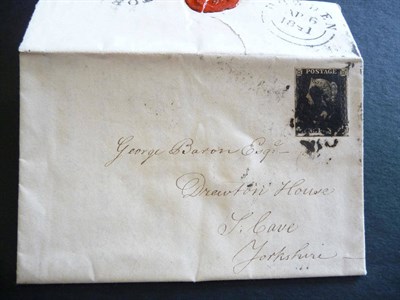 AP 6
1841
POSTAGE
George Baron Esqr
Drewton House
S. Cave
Yorkshire